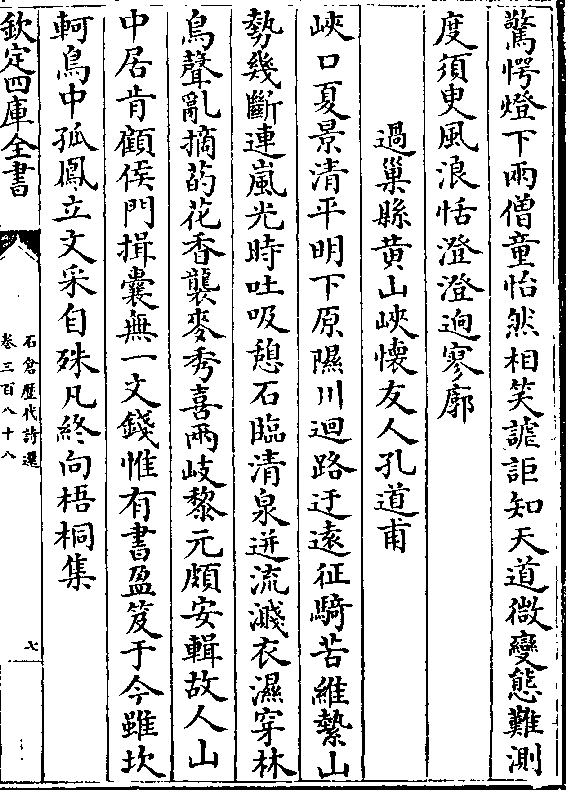 驚愕燈下兩僧童怡然相笑謔詎知天道微變態難測
度須臾風浪恬澄澄迥寥廓
過巢縣黄山峽懷友人孔道甫
峽口夏景清平明下原隰川迴路迂遠征騎苦維縶山
勢幾斷連嵐光時吐吸憩石臨清泉迸流濺衣濕穿林
鳥聲亂摘菂花香襲麥秀喜兩岐黎元頗安輯故人山
中居肯顧侯門揖囊無一文錢惟有書盈笈于今雖坎
軻鳥中孤鳳立文采自殊凡終向梧桐集
欽定四庫全書
石倉歴代詩選
卷三百八十八
七